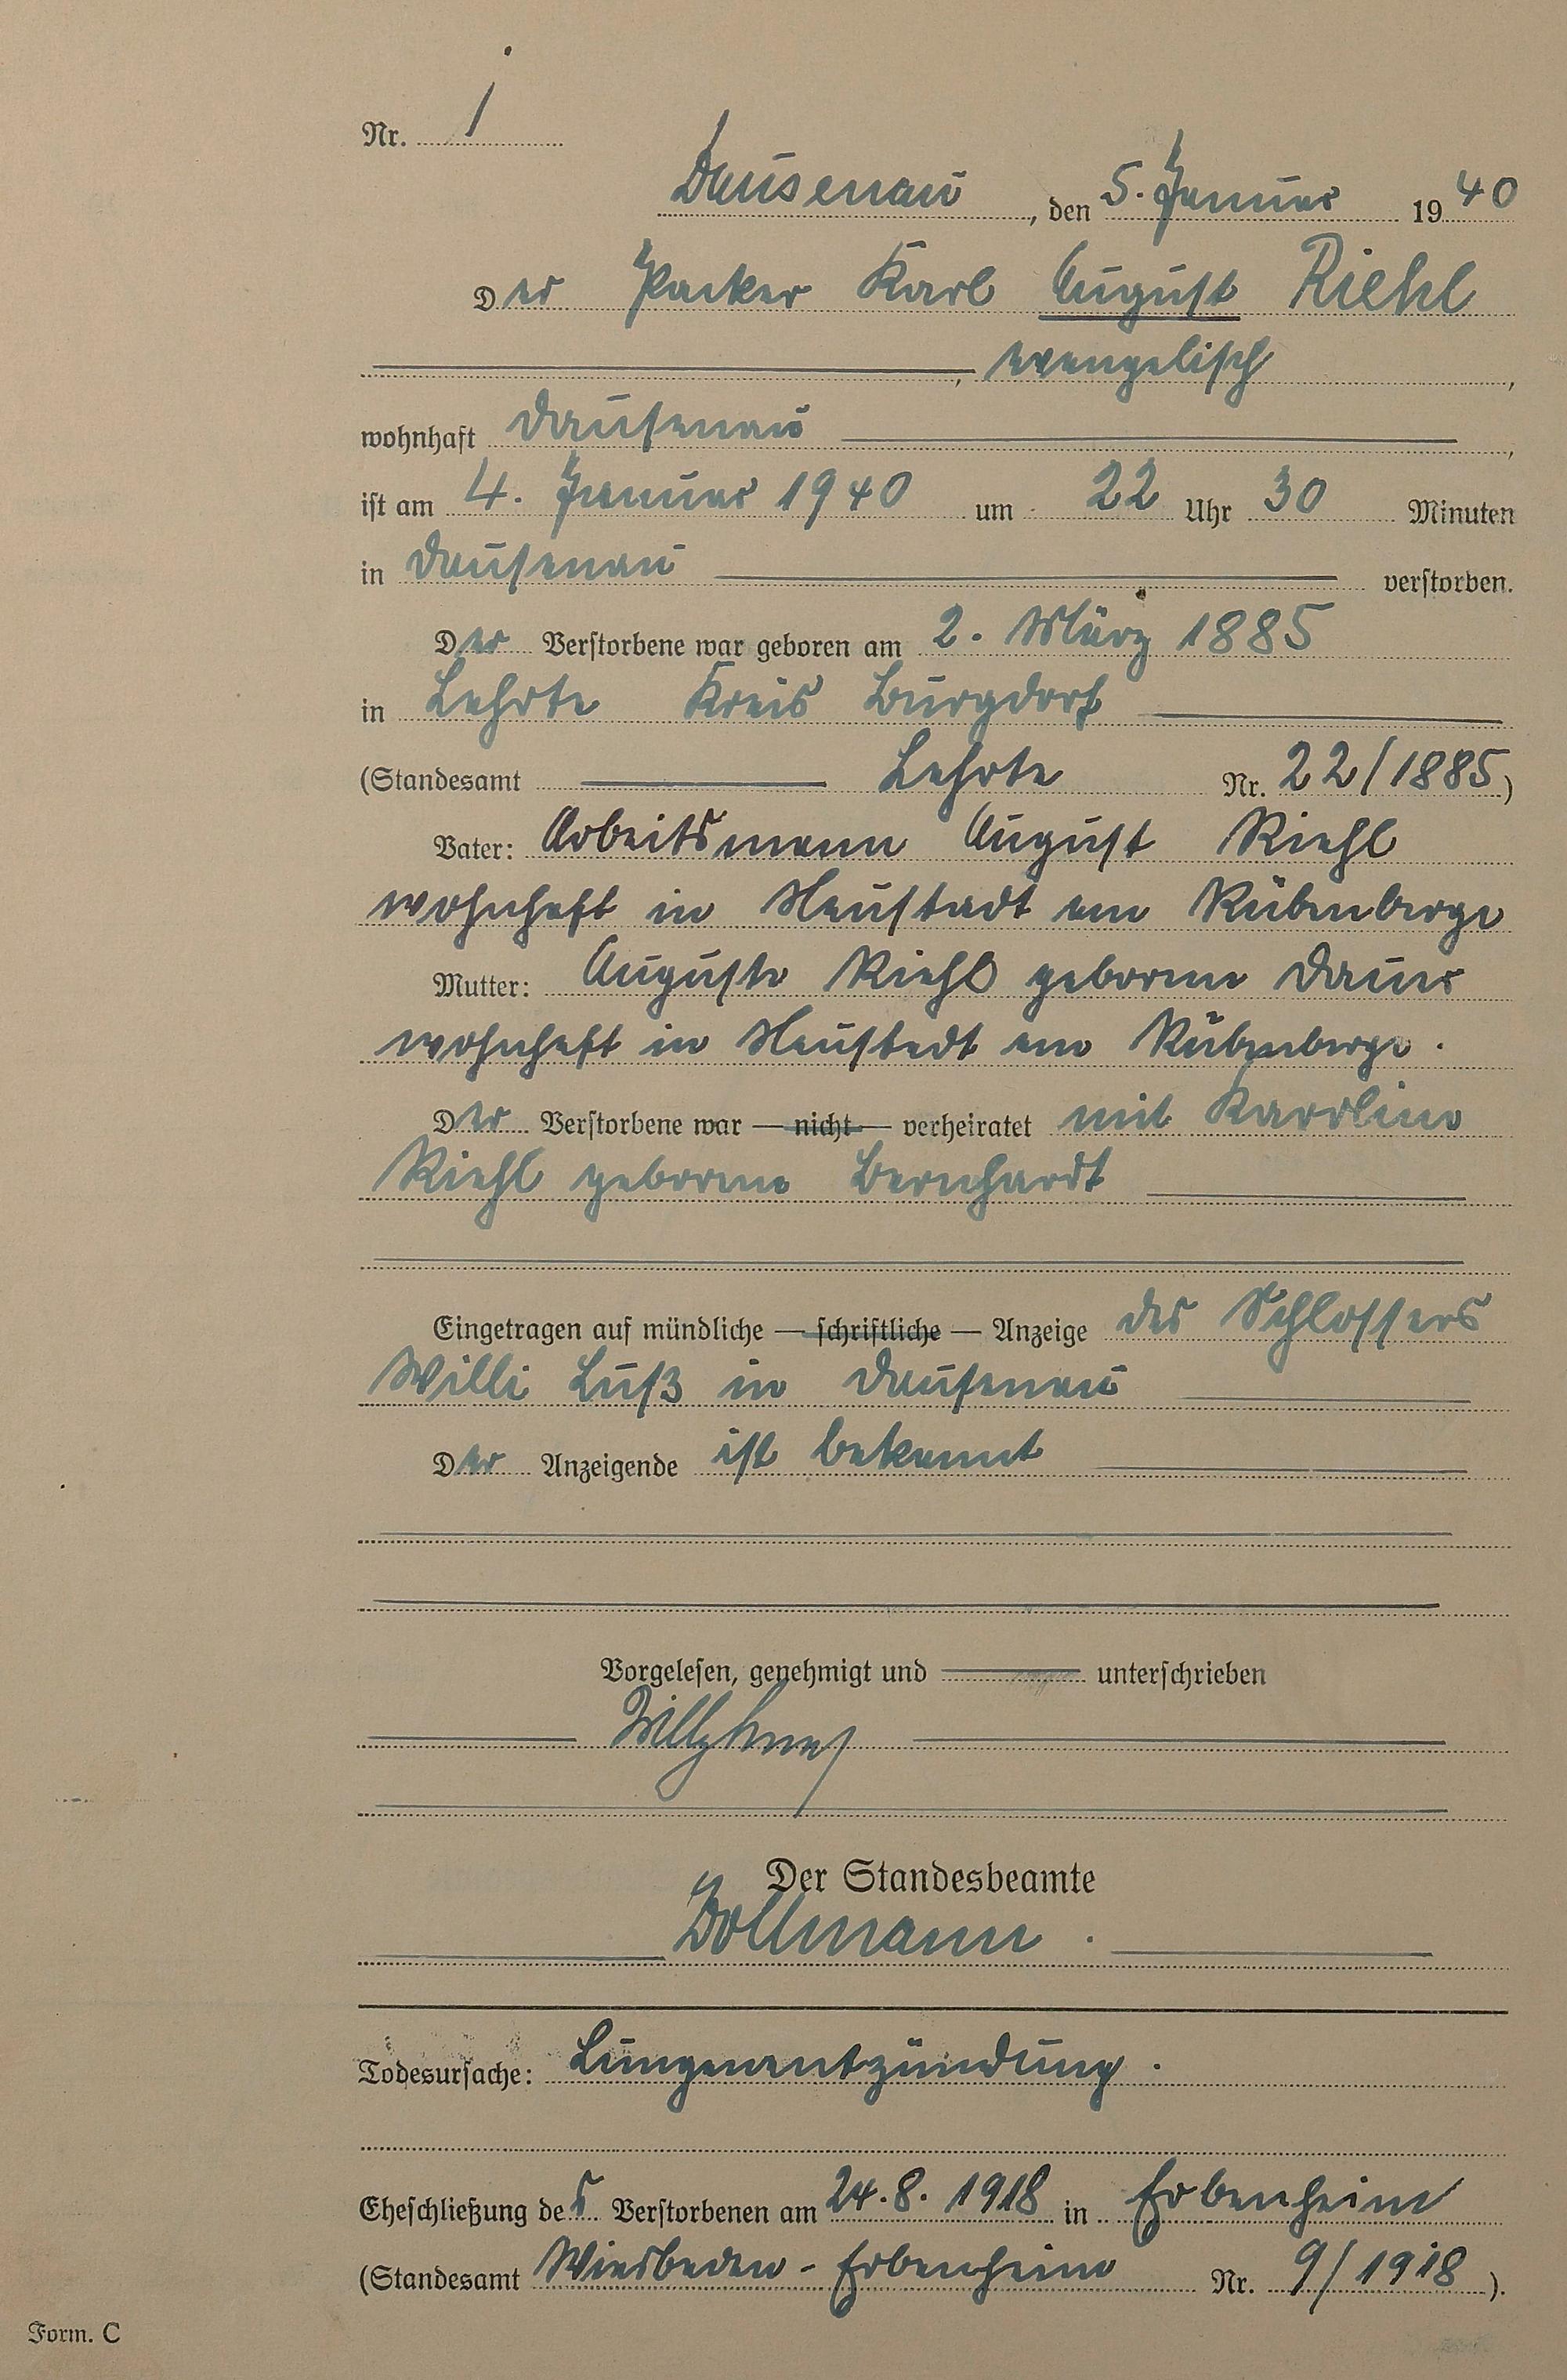 Nr. 1
Dausenau, den 5. Januar 1940
Der Packer Karl August Riehl
, evangelisch,
wohnhaft Dausenau,
ist am 4. Januar 1940 um 22 Uhr 30 Minuten
in Dausenau verstorben.
Der Verstorbene war geboren am 2. März 1885
in Lehrte Kreis Burgdorf
(Standesamt Lehrte Nr. 22/1885)
Vater: Arbeitsmann August Riehl
wohnhaft in Neustadt am Rübenberge
Mutter: Auguste Riehl geborene
wohnhaft in Neustadt am Rübenberge.
Der Verstorbene war — nicht — verheiratet mit Karoline
Riehl geborene Bernhardt
Eingetragen auf mündliche — schriftliche — Anzeige des Schlossers
Willi Luß in Dausenau
Der Anzeigende ist bekannt
Vorgelesen, genehmigt und unterschrieben
Willy
Der Standesbeamte
Döllmann.
Todesursache: Lungenentzündung.
Eheschließung des Verstorbenen am 24.8.1918 in Erbenheim
(Standesamt Wiesbaden-Erbenheim Nr. 9/1918).
Form. C